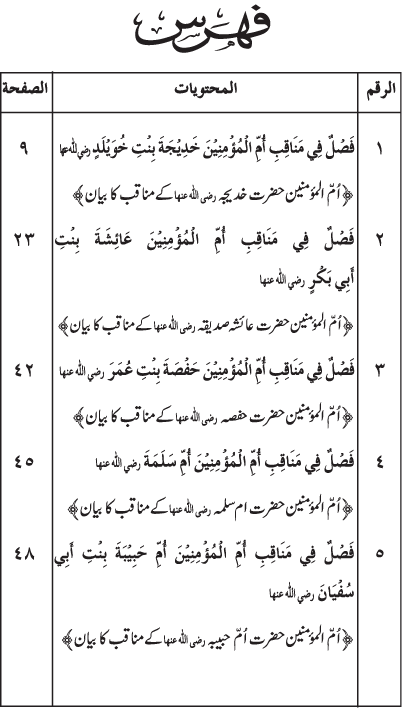 فہرس
الرقم المحتويات الصفحة
١ فَصْلٌ فِي مَنَاقِبِ أُمِّ الْمُؤْمِنِيْنَ خَدِيْجَةَ بِنْتِ خُوَيْلَدٍ رضی اللہ عنہا ٩
﴿اُمّ المؤمنین حضرت خدیجہ رضی اللہ عنہا کے مناقب کا بیان﴾
٢ فَصْلٌ فِي مَنَاقِبِ أُمِّ الْمُؤْمِنِيْنَ عَائِشَةَ بِنْتِ ٢٣
أَبِي بَكْرٍ رضی اللہ عنہا
﴿اُمّ المؤمنین حضرت عائشہ صدیقہ رضی اللہ عنہا کے مناقب کا بیان﴾
٣ فَصْلٌ فِي مَنَاقِبِ أُمِّ الْمُؤْمِنِيْنَ حَفْصَةَ بِنْتِ عُمَرَ رضی اللہ عنہا ٤٢
﴿اُمّ المؤمنین حضرت حفصہ رضی اللہ عنہا کے مناقب کا بیان﴾
٤ فَصْلٌ فِي مَنَاقِبِ أُمِّ الْمُؤْمِنِيْنَ أُمِّ سَلَمَةَ رضی اللہ عنہا ٤٥
﴿اُمّ المؤمنین حضرت ام سلمہ رضی اللہ عنہا کے مناقب کا بیان﴾
٥ فَصْلٌ فِي مَنَاقِبِ أُمِّ الْمُؤْمِنِيْنَ أُمِّ حَبِيْبَةَ بِنْتِ أَبِي ٤٨
سُفْيَانَ رضی اللہ عنہا
﴿اُمّ المؤمنین حضرت اُمّ حبیبہ رضی اللہ عنہا کے مناقب کا بیان﴾